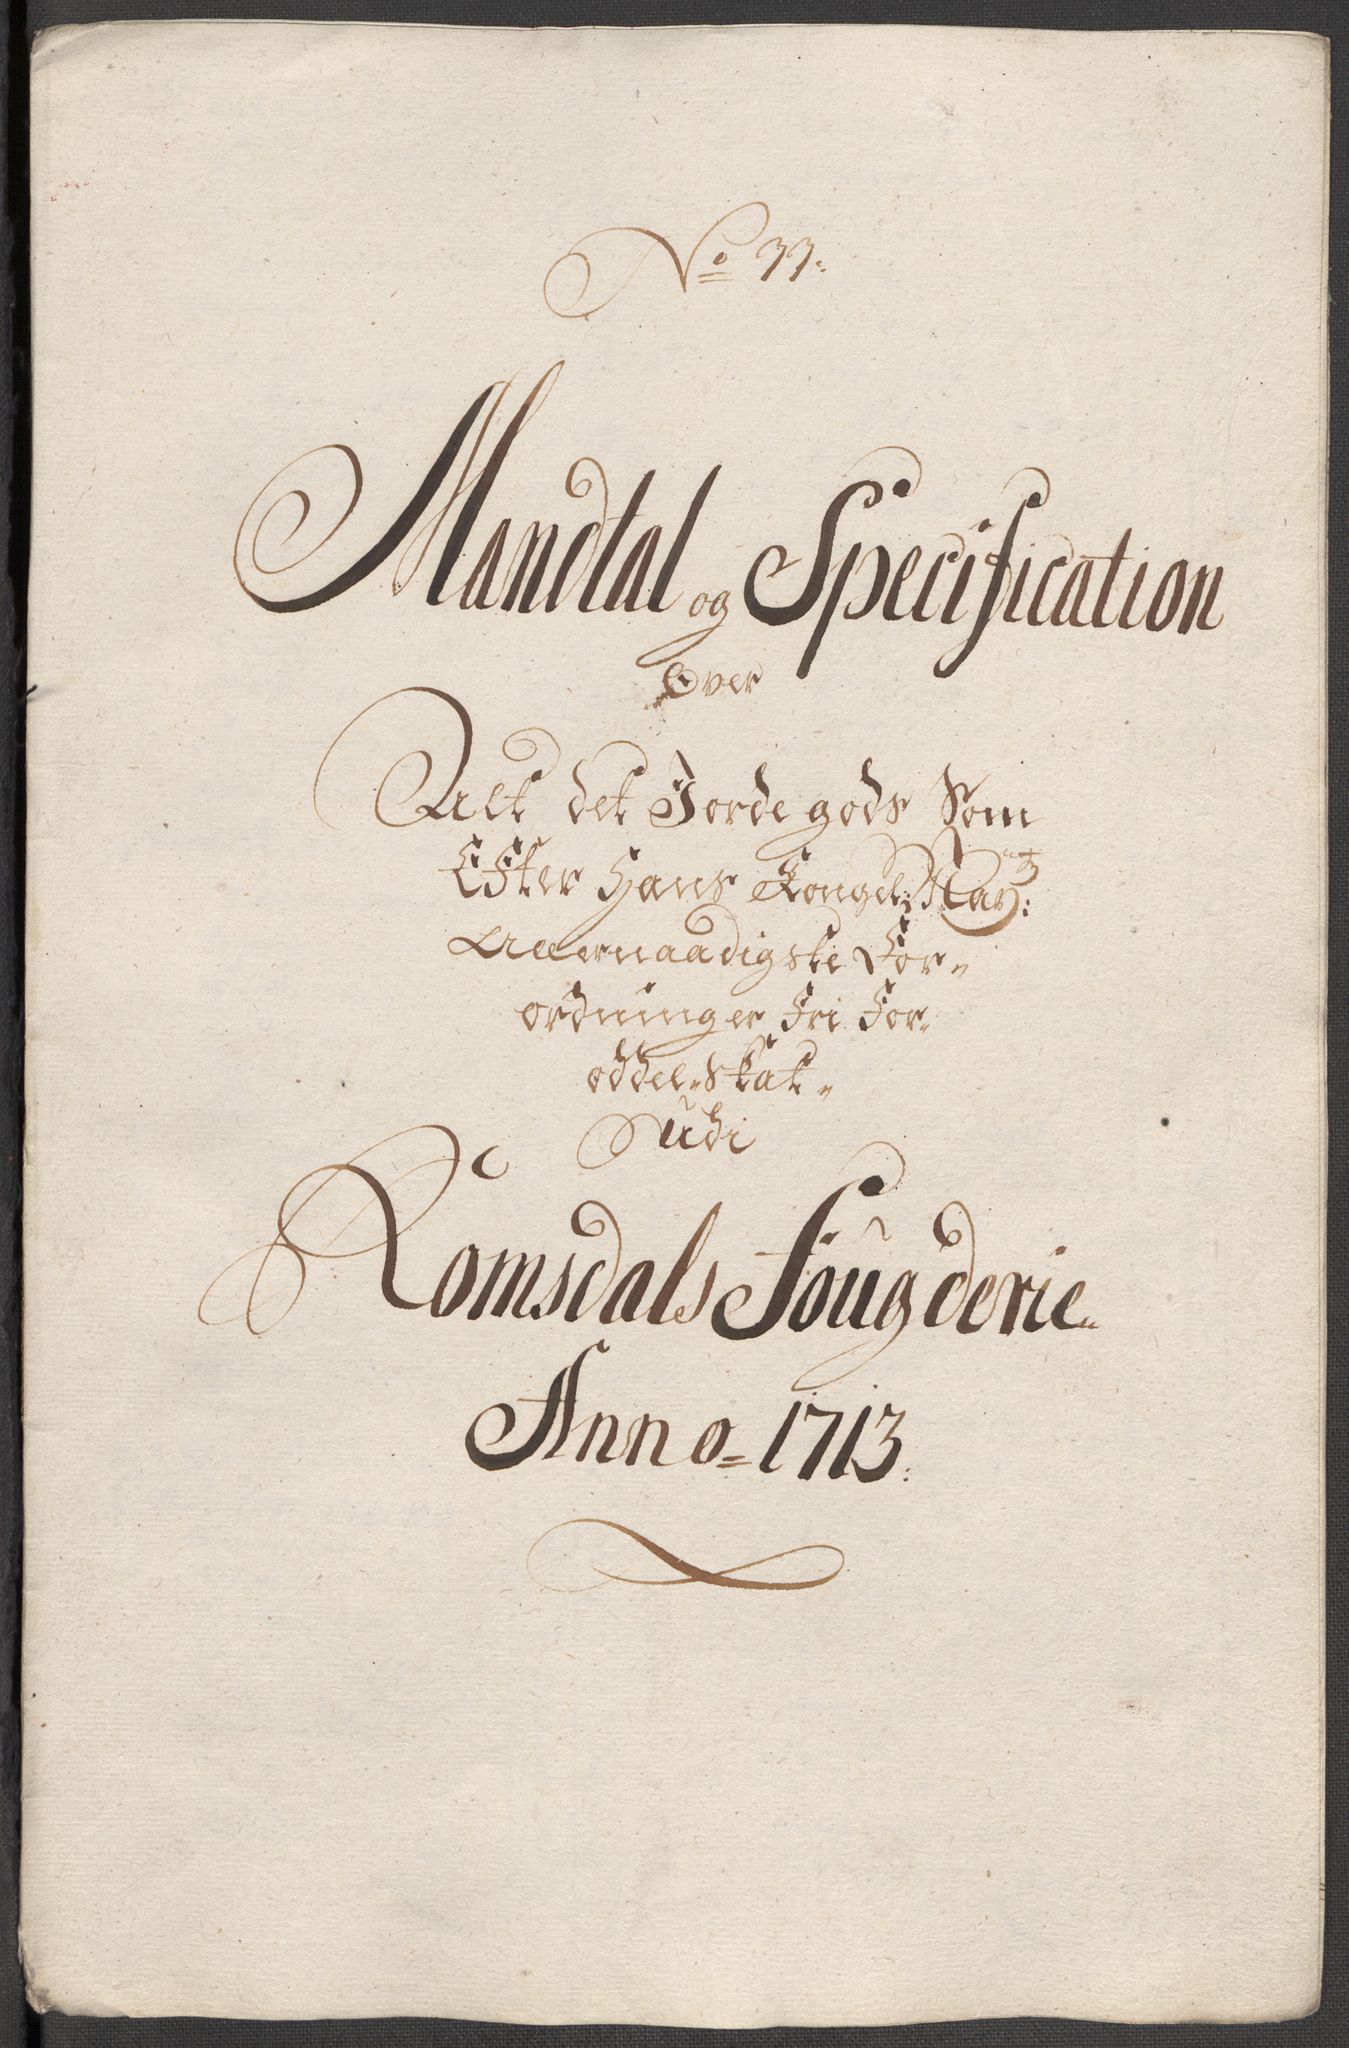 No 33:
Mandtal og Specification
Over
Alt det Jordegods Som
Efter Hans Kongel: May:tz
Allernaadigste For-
ordninger Fri For
oddel-skat-
Udi
Romsdals Fougderie
Anno - 1713.